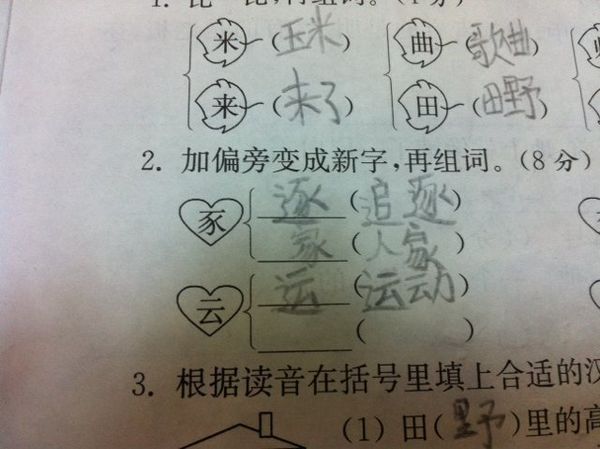 1. 比一比,再组词。(4分)
米 (玉米) 曲 (歌曲)
来 (来了) 田 (田野)
2. 加偏旁变成新字,再组词。(8分)
豖 逐 (追逐)
家 (人家)
云 运 (运动)
( )
3. 根据读音在括号里填上合适的汉
(1) 田(野)里的高